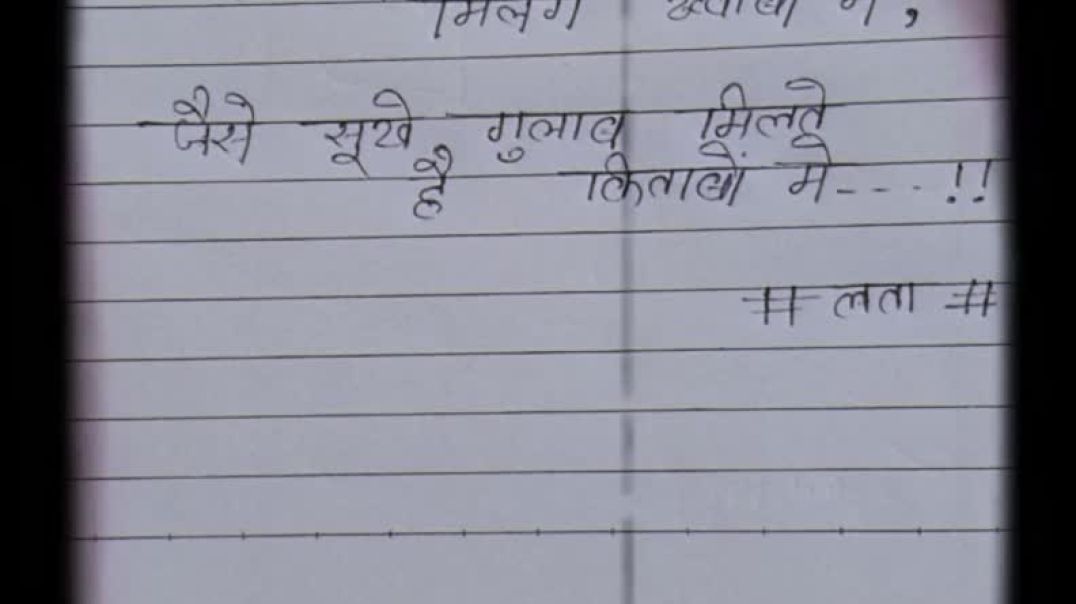 मिलेंगे ख्वाबों में,
जैसे सूखे गुलाब मिलते
है किताबों मे----!!
# लता #